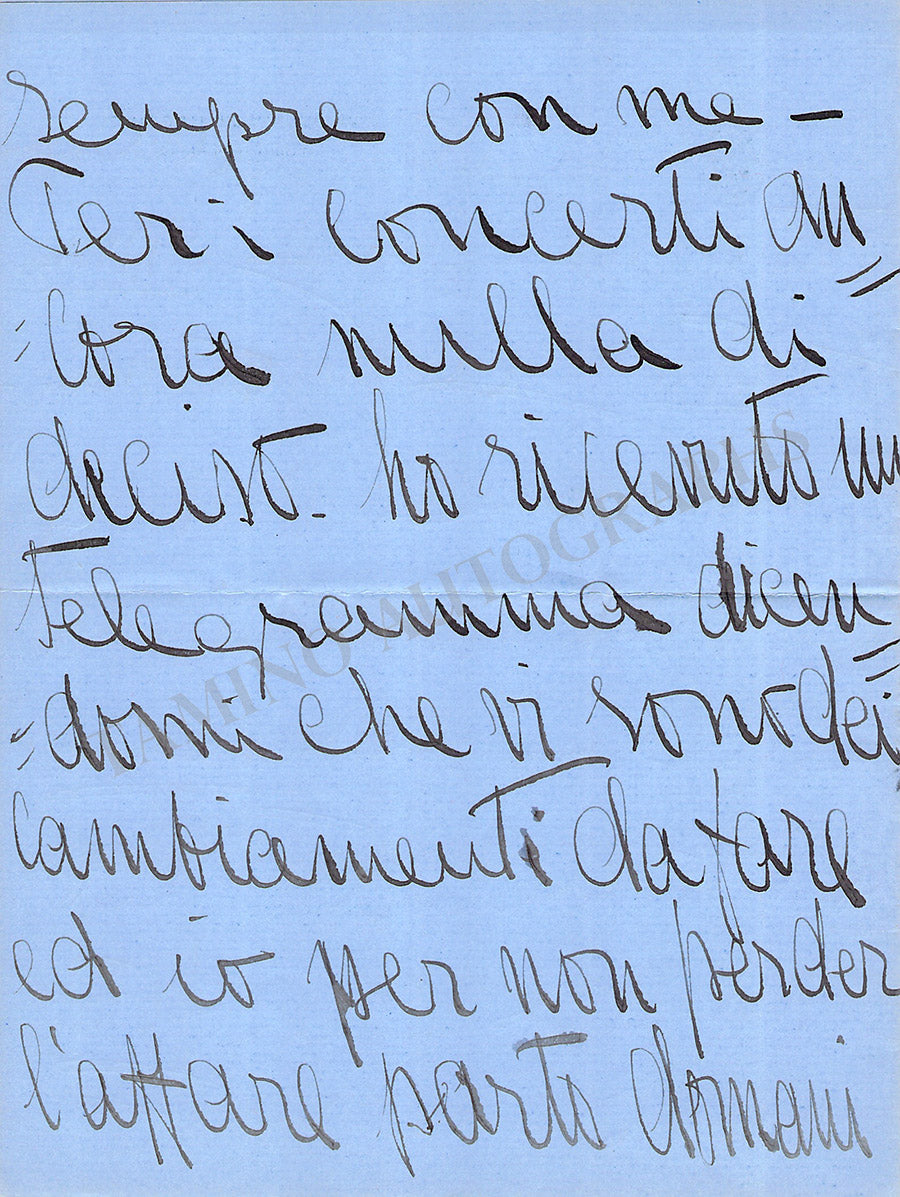 sempre con me —
Per i concerti an
=cora nulla di
deciso. ho ricevuto un
telegramma dicen
=domi che vi sono dei
cambiamenti da fare
ed io per non perder
l'affare parto domani
TAMINO AUTOGRAPHS